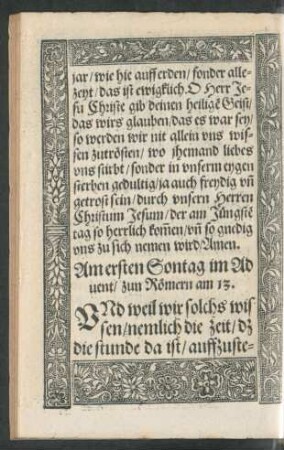 jar/ wie hie auff erden/ sonder alle-
zeyt/ das ist ewigklich. O Herr Je-
su Christe gib deinen heiligẽ Geist/
das wirs glauben/ das es war sey/
so werden wir nit allein vns wis-
sen zutrösten/ wo jhemand liebes
vns stirbt/ sonder in vnserm eygen
sterben gedultig/ ja auch freydig vñ
getrost sein/ durch vnsern Herren
Christum Jesum/ der am Jüngstẽ
tag so herrlich kom̃en/ vñ so gnedig
vns zu sich nemen wird/ Amen.
Am ersten Sontag im Ad
uent/ zun Römern am 13.
VNd weil wir solchs wis
sen/ nemlich die zeit/ dz
die stunde da ist/ auffzuste-